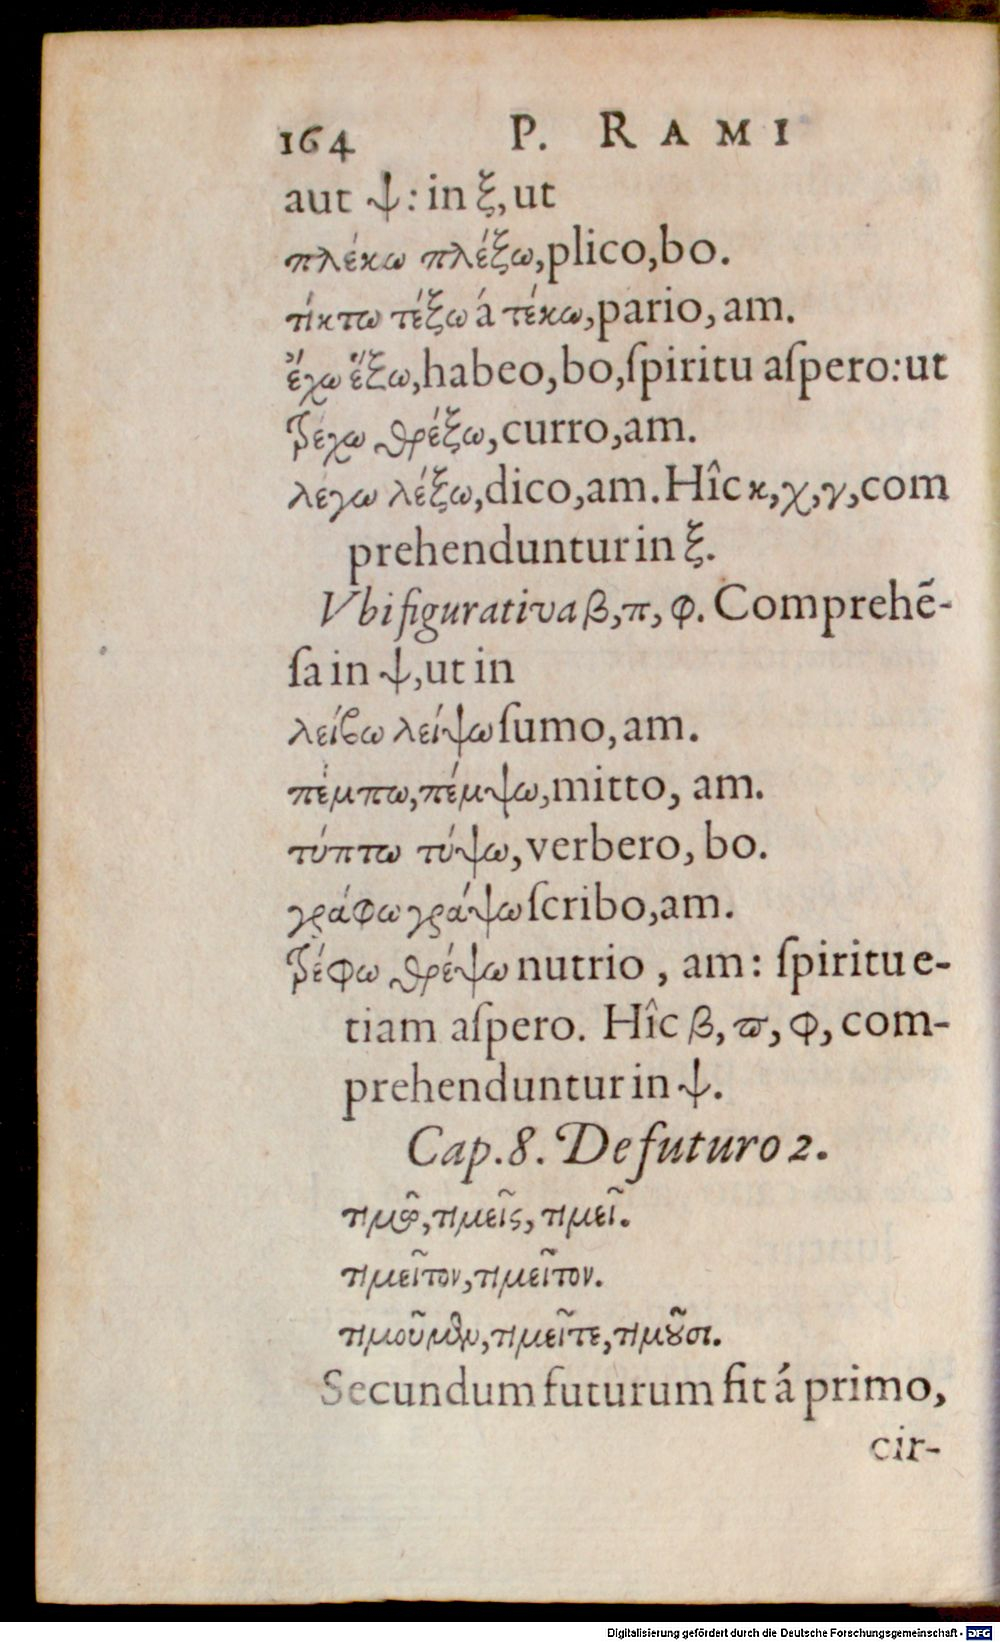 164 P. RAMI
aut ψ: in ξ, ut
πλέκω πλέξω, plico, bo.
τίκτω τέξω á τέκω, pario, am.
ἔχω ἕξω, habeo, bo, ſpiritu aſpero: ut
τρέχω θρέξω, curro, am.
λέγω λέξω, dico, am. Hîc κ, χ, γ, com
prehenduntur in ξ.
Vbi figurativa β, π, φ. Comprehẽ-
ſa in ψ, ut in
λείβω λείψω ſumo, am.
πέμπω, πέμψω, mitto, am.
τύπτω τύψω, verbero, bo.
γράφω γράψω ſcribo, am.
τρέφω θρέψω nutrio , am: ſpiritu e-
tiam aſpero. Hîc β, ϖ, φ, com-
prehenduntur in ψ.
Cap. 8. De futuro 2.
τιμῶ, τιμεῖς, τιμεῖ.
τιμεῖτον, τιμεῖτον.
τιμοῦμεν, τιμεῖτε, τιμοῦσι.
Secundum futurum fit á primo,
cir-
Digitalisierung gefördert durch die Deutsche Forschungsgemeinschaft - DFG